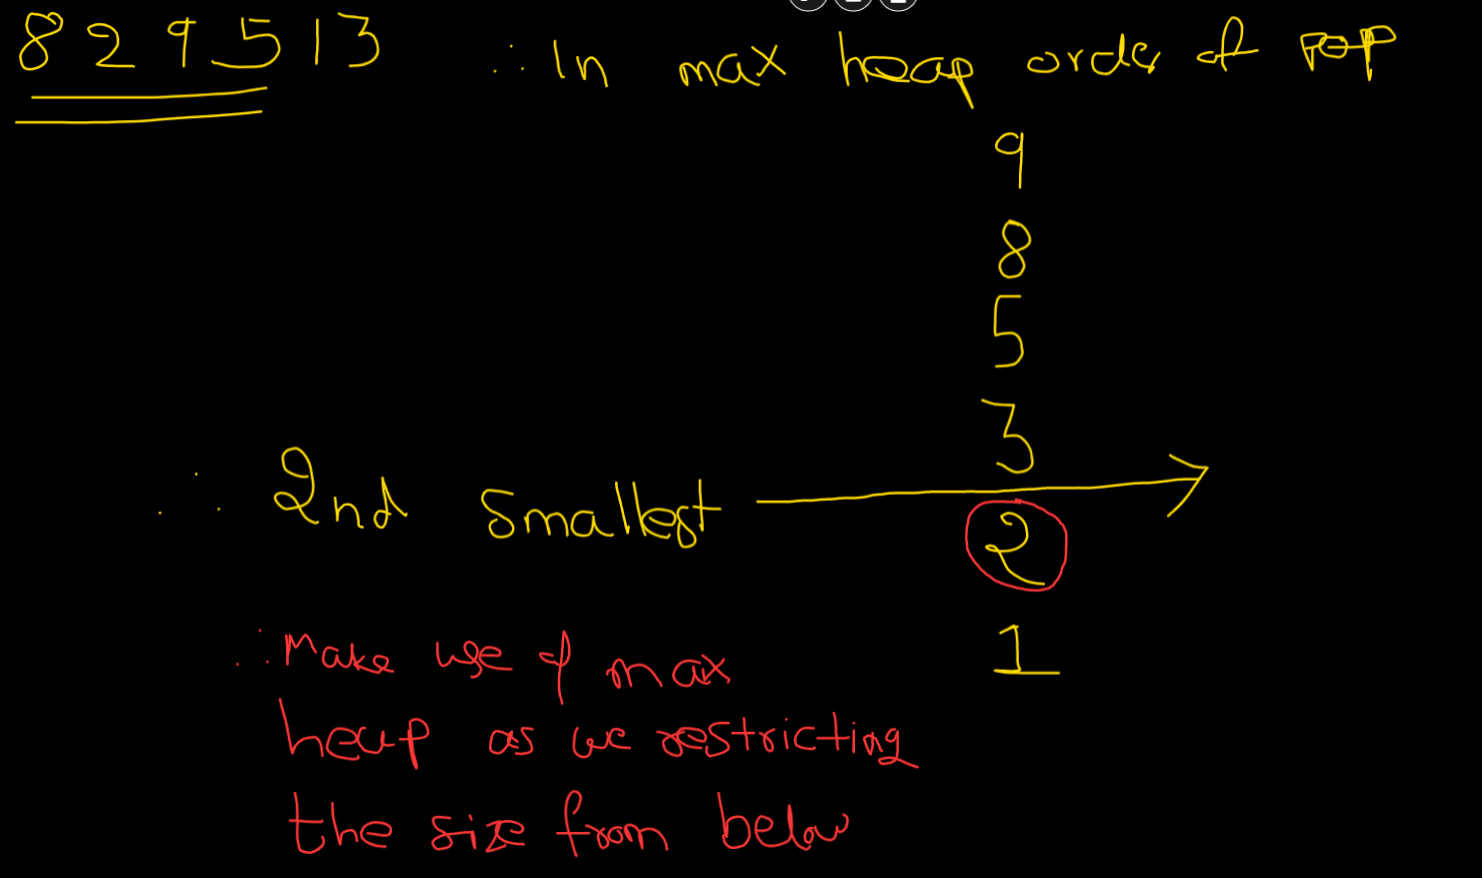 8 2 9 5 1 3 ∴ In max heap order of pop
9
8
5
3
∴ 2nd Smallest
2
1
∴ Make use of max
heap as we restricting
the size from below